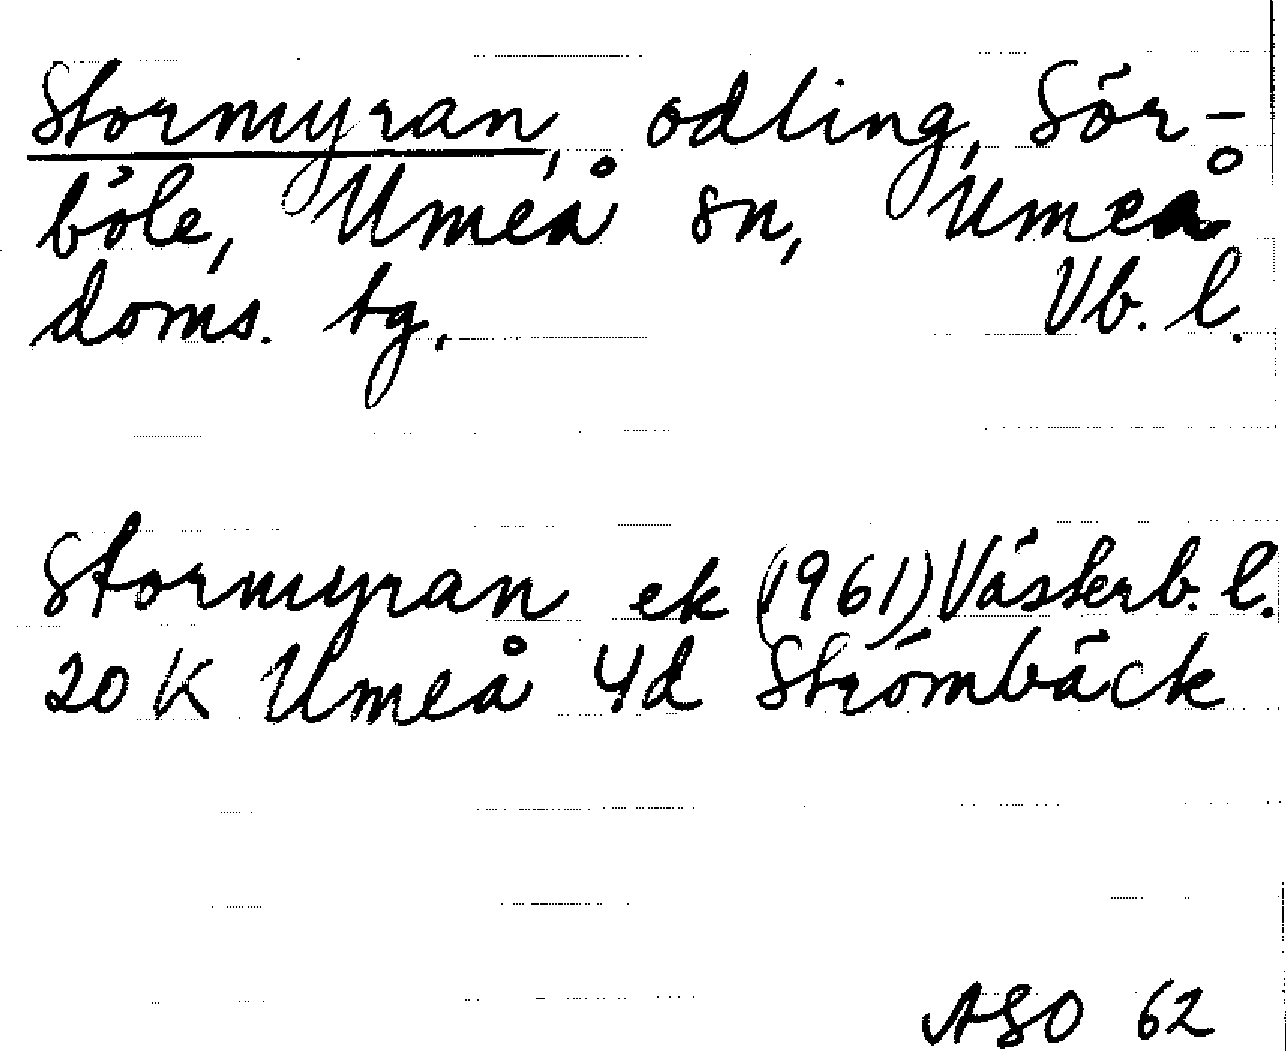 Stormyran, odling, Sör-
böle, Umeå sn, Umeå
doms. tg. Vb. l.
Stormyran ek (1961) Västerb. l.
20 K Umeå 4d Strömbäck
ASO 62